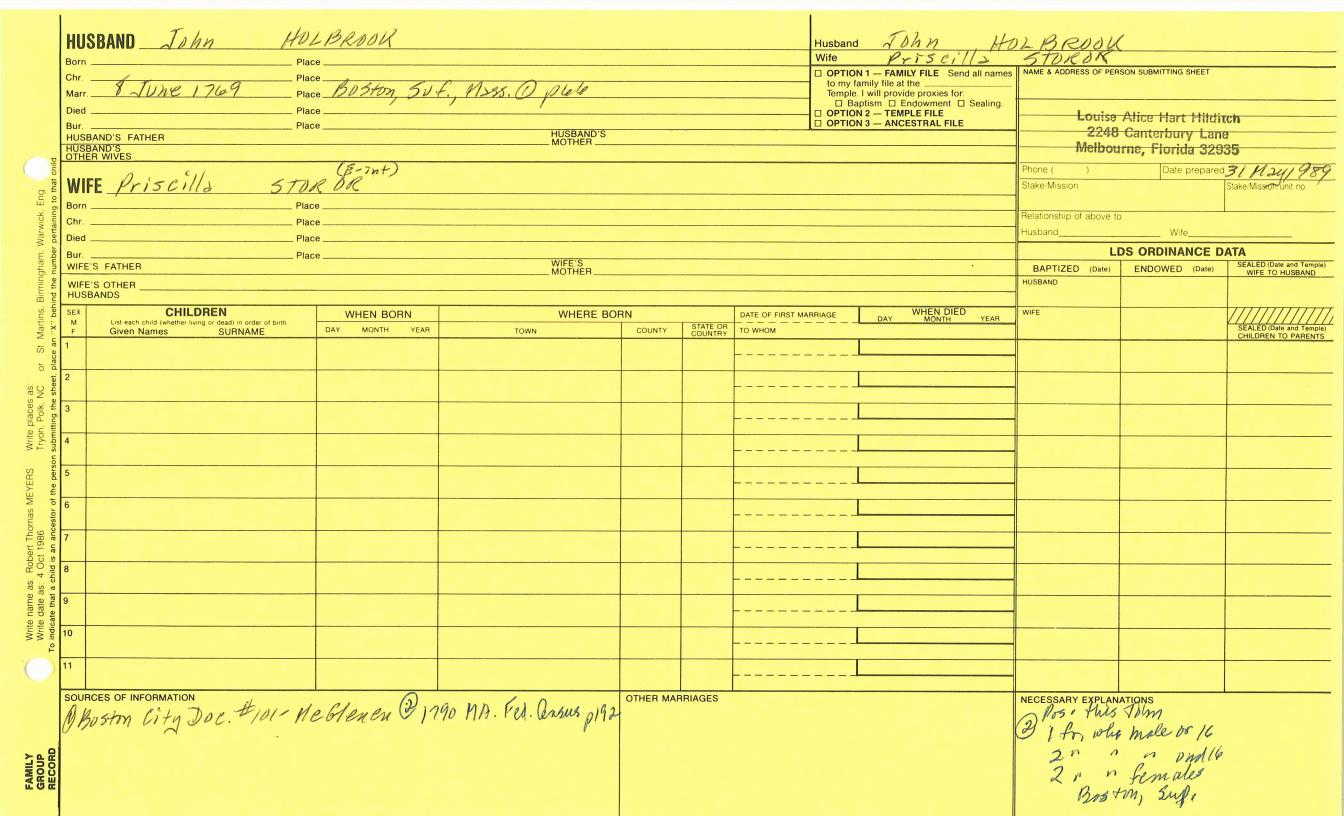 HUSBAND John HOLBROOK
Born Place
Chr. Place
Marr. 8 June 1769 Place Boston, Suf., Mass. ① p66
Died Place
Bur. Place
HUSBAND'S FATHER HUSBAND'S MOTHER
HUSBAND'S OTHER WIVES
Husband John HOLBROOK
Wife Priscilla STOROR
☐ OPTION 1 — FAMILY FILE Send all names
to my family file at the
Temple. I will provide proxies for:
☐ Baptism ☐ Endowment ☐ Sealing.
☐ OPTION 2 — TEMPLE FILE
☐ OPTION 3 — ANCESTRAL FILE
NAME & ADDRESS OF PERSON SUBMITTING SHEET
Louise Alice Hart Hilditch
2248 Canterbury Lane
Melbourne, Florida 32935
Phone ( ) Date prepared 31 May 1989
Stake/Mission Stake/Mission unit no.
Relationship of above to
Husband Wife
(E-int)
WIFE Priscilla STOROR
Born Place
Chr. Place
Died Place
Bur. Place
WIFE'S FATHER WIFE'S MOTHER
WIFE'S OTHER HUSBANDS
LDS ORDINANCE DATA
BAPTIZED (Date) ENDOWED (Date) SEALED (Date and Temple) WIFE TO HUSBAND
HUSBAND
WIFE
SEALED (Date and Temple) CHILDREN TO PARENTS
SEX M F
CHILDREN
List each child (whether living or dead) in order of birth
Given Names SURNAME
WHEN BORN
DAY MONTH YEAR
WHERE BORN
TOWN COUNTY STATE OR COUNTRY
DATE OF FIRST MARRIAGE
TO WHOM
WHEN DIED
DAY MONTH YEAR
1
2
3
4
5
6
7
8
9
10
11
SOURCES OF INFORMATION
① Boston City Doc. #101- McGlenen ② 1790 MA. Fed. Census p192
OTHER MARRIAGES
NECESSARY EXPLANATIONS
Pos. this John
② 1 fr, whe male or 16
2 " " " und 16
2 " " females
Boston, Suf.
Write name as: Robert Thomas MEYERS Write places as: Tryon, Polk, NC or St. Martins, Birmingham, Warwick, Eng
Write date as: 4 Oct 1986
To indicate that a child is an ancestor of the person submitting the sheet, place an "X" behind the number pertaining to that child.
FAMILY GROUP RECORD